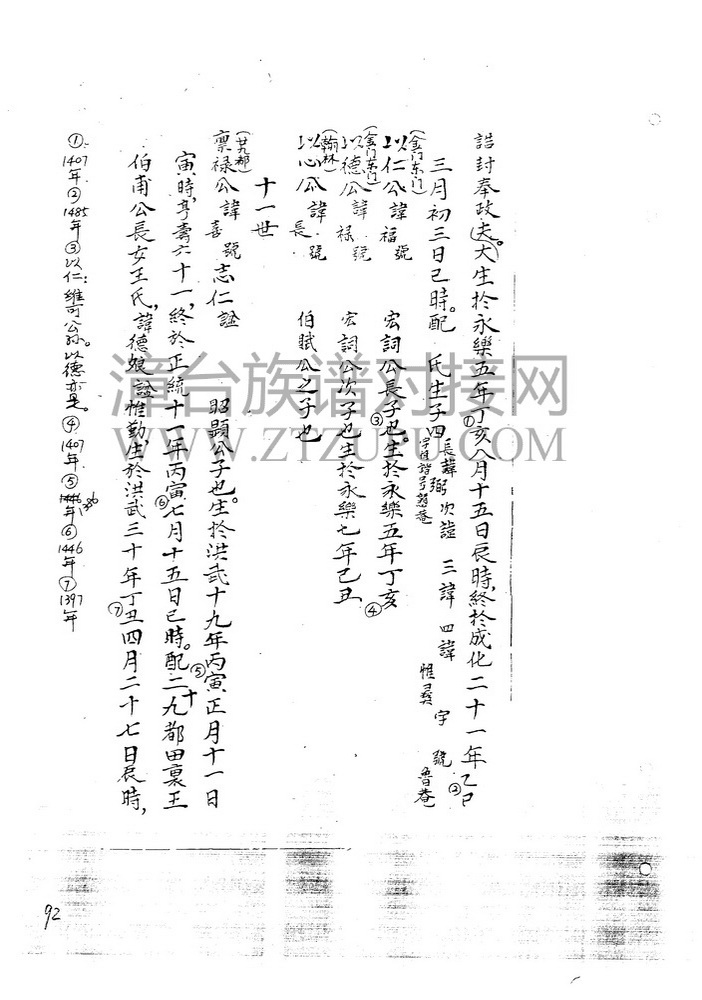 誥封奉政大夫。生於永樂五年丁亥①八月十五日辰時,終於成化二十一年乙巳②
三月初三日巳時。配 氏生子四 長諱弼 次諡 三諱 四諱 惟彝 字 號 魯菴
(金门东门)
以仁公諱福號 宏詞公長子也。③生於永樂五年丁亥④
(金门东门)
以德公諱祿號 宏詞公次子也生於永樂七年己丑
(翰林)
以心公諱長號 伯賦公之子也
十一世
(廿九都)
稟祿公諱喜號志仁諡 昭顯公子也。生於洪武十九年丙寅⑤正月十一日
寅時,享壽六十一,終於正統十一年丙寅⑥七月十五日巳時。配二十九都田裏王
伯甫公長女王氏,諱德娘諡惟勤,生於洪武三十年丁丑⑦四月二十七日辰時,
①:1407年②1485年③以仁:维可公孙。以德亦是。④1407年⑤1386年⑥1446年⑦1397年
92
漳台族谱对接网
WWW.ZTZUPU.COM